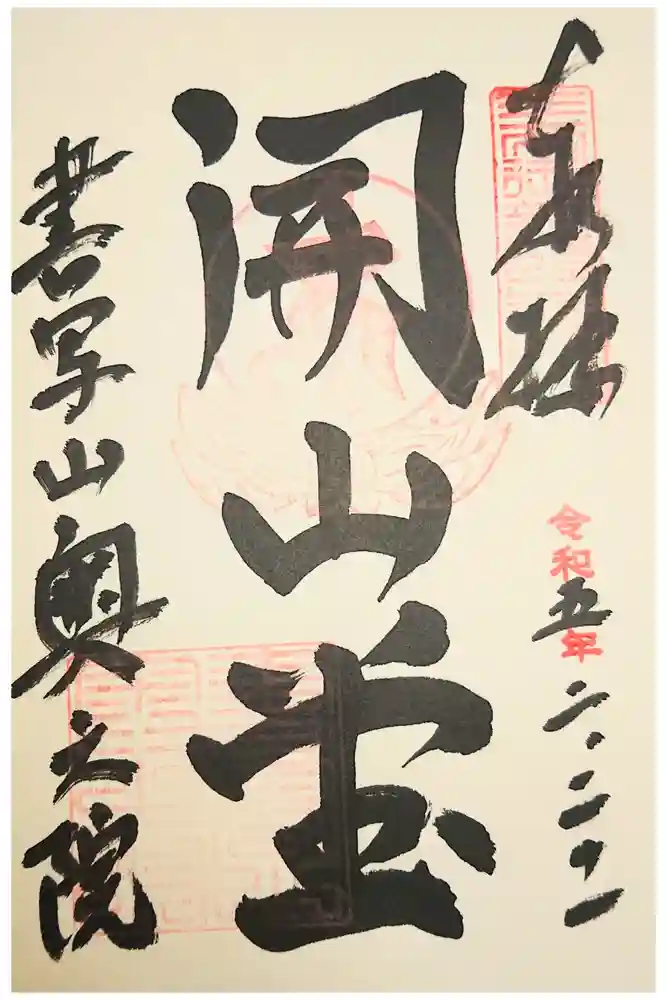 奉拝
令和五年二、二十一
開山堂
書写山奥之院